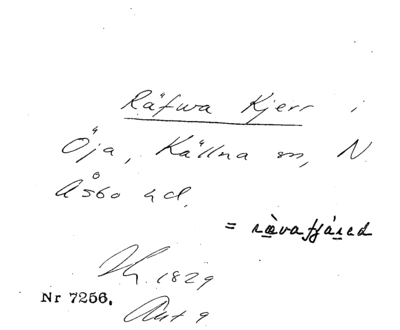 Räfwa Kjerr i
Öja, Källna sn, N.
Åsbo hd.
= rävafjäred
1829
Nr 7256.
Ant 9